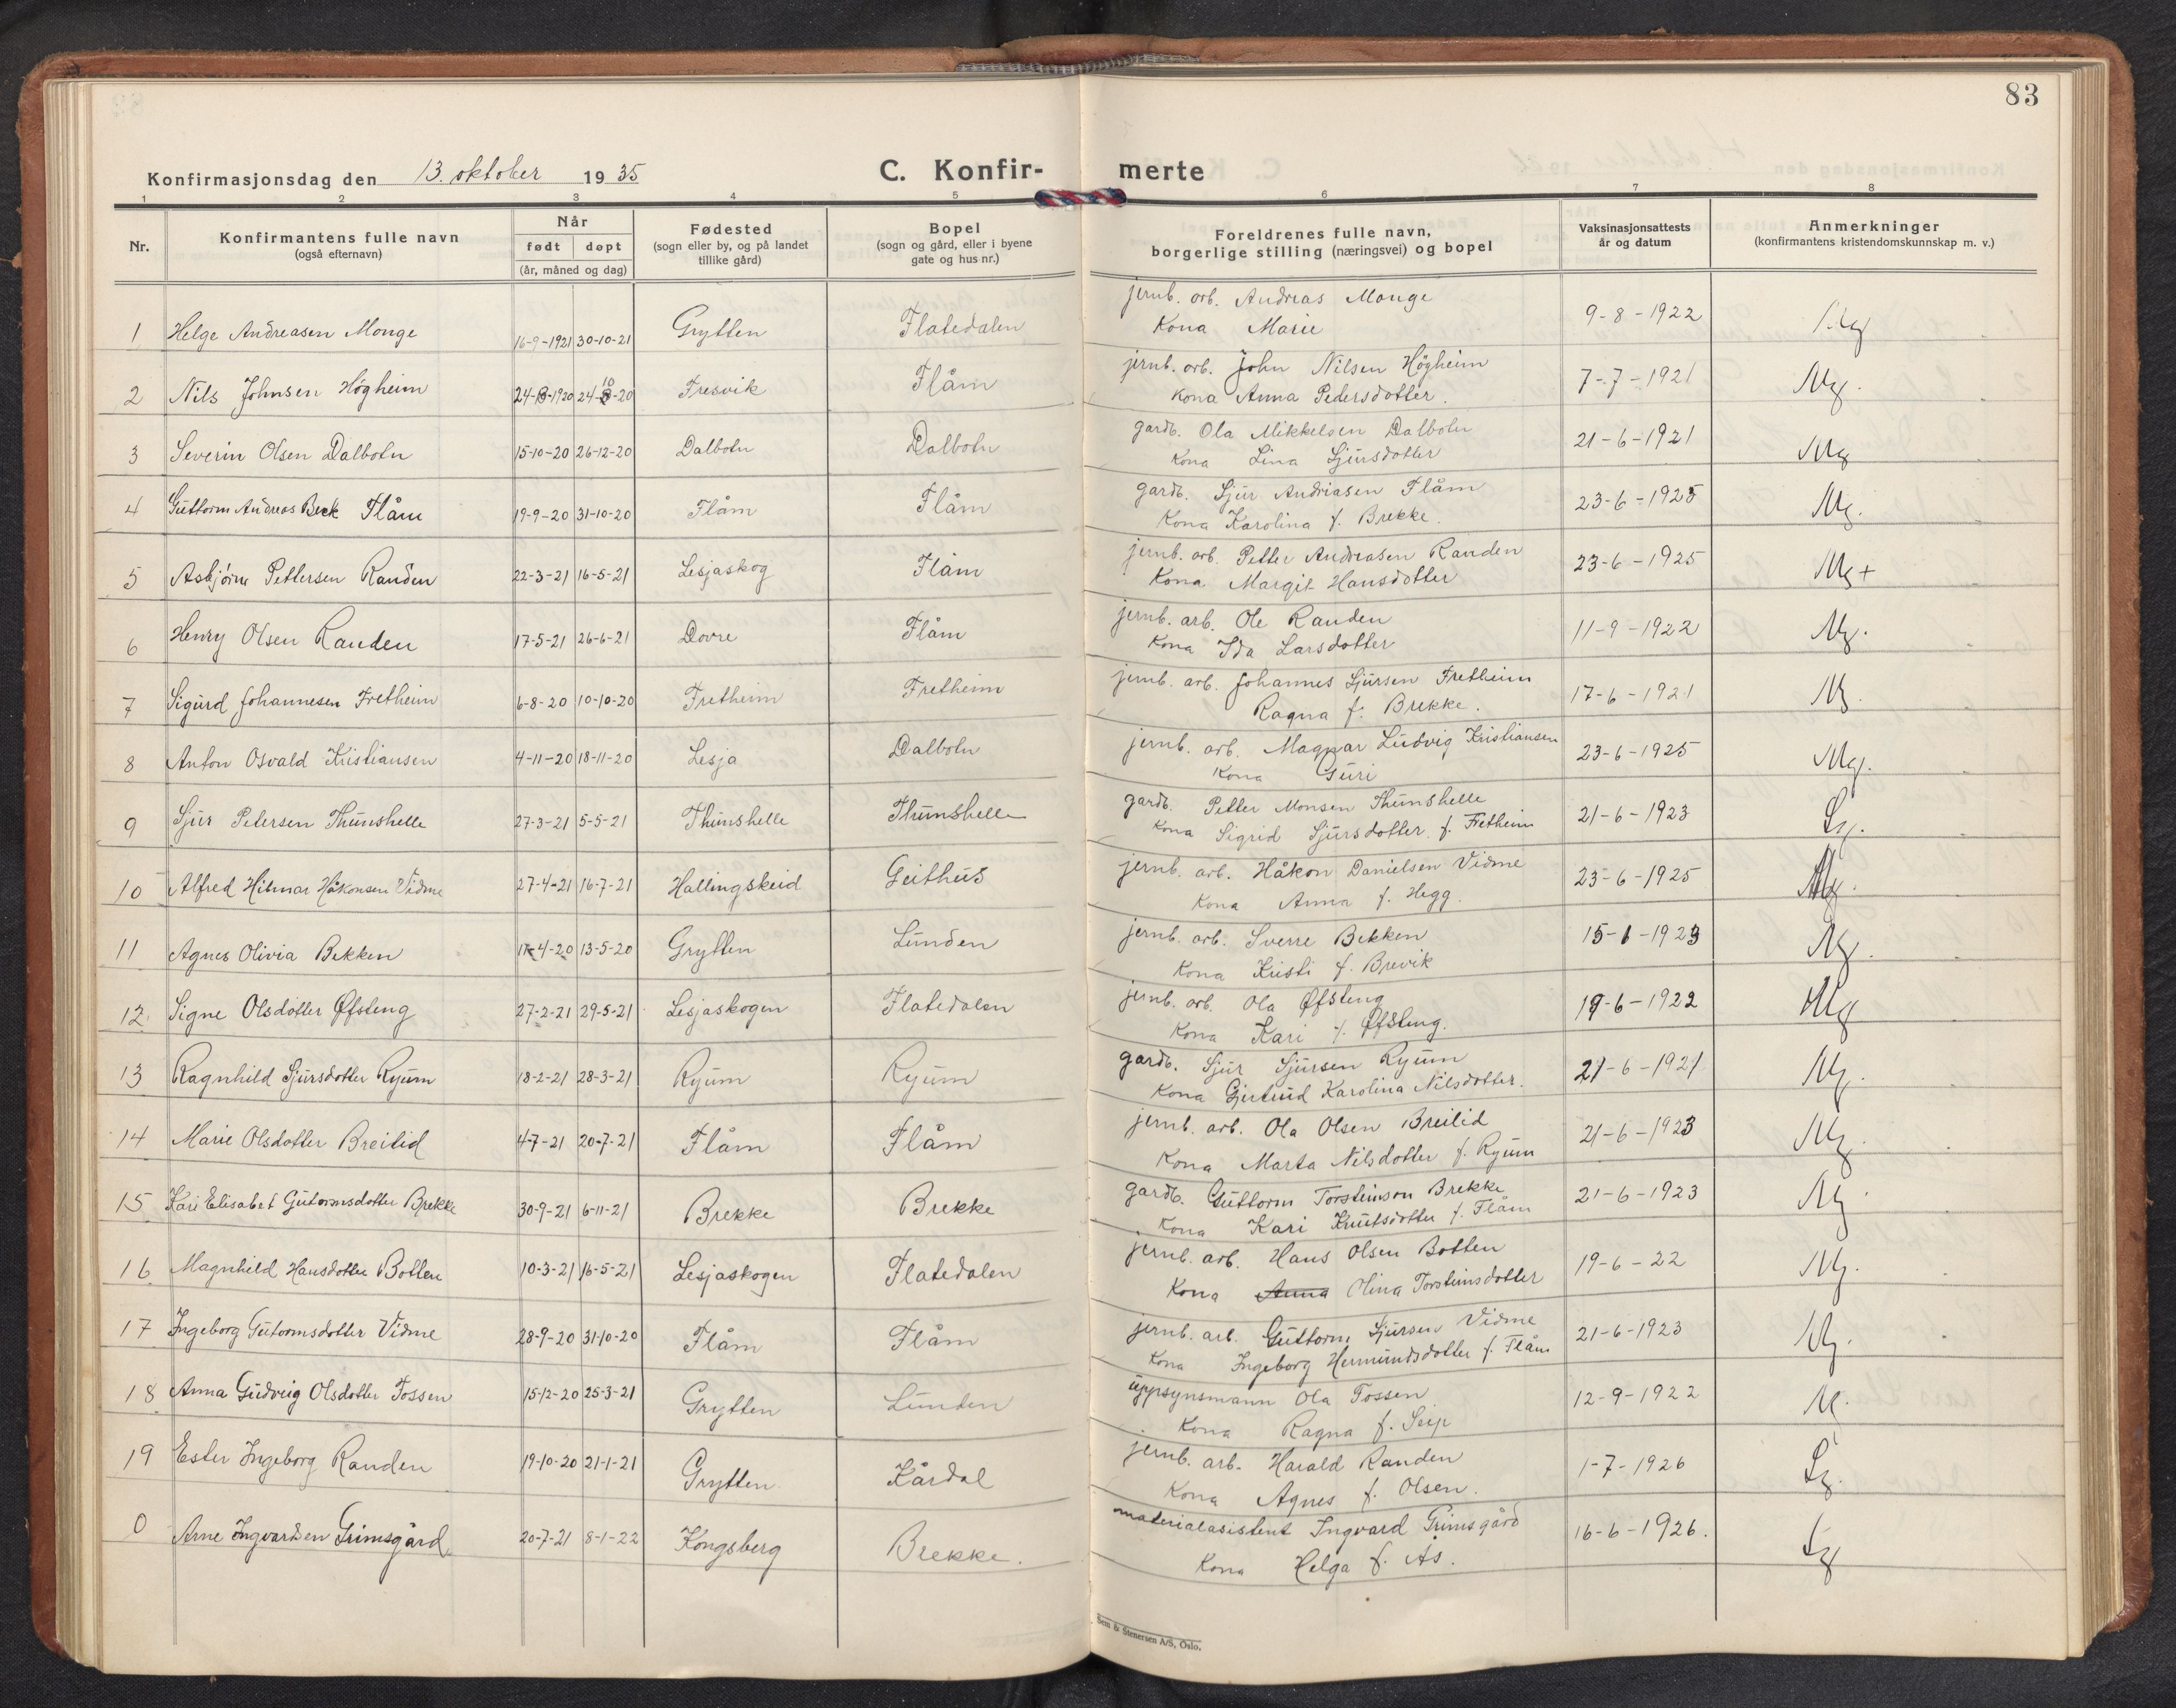 83
Konfirmasjonsdag den 13. oktober 1935
C. Konfir- merte
1 2 3 4 5 6 7 8
Nr. Konfirmantens fulle navn (også efternavn) Når født døpt (år, måned og dag) Fødested (sogn eller by, og på landet tillike gård) Bopel (sogn og gård, eller i byene gate og hus nr.) Foreldrenes fulle navn, borgerlige stilling (næringsvei) og bopel Vaksinasjonsattests år og datum Anmerkninger (konfirmantens kristendomskunnskap m. v.)
1 Helge Andreasen Monge 16-9-1921 30-10-21 Grytten Flatedalen jernb. arb. Andreas Monge 9-8-1922 Mg
Kona Marie
2 Nils Johnsen Høgheim 24-8-1920 24-10-20 Fresvik Flåm jernb. arb. John Nilsen Høgheim 7-7-1921 Mg.
Kona Anna Pedersdotter.
3 Severin Olsen Dalbotn 15-10-20 26-12-20 Dalbotn Dalbotn gardb. Ola Mikkelsen Dalbotn 21-6-1921 Mg
Kona Lina Sjursdotter
4 Guttorm Andreas Beck Flåm 19-9-20 31-10-20 Flåm Flåm gardb. Sjur Andriasen Flåm 23-6-1925 Mg.
Kona Karolina f. Brekke.
5 Asbjørn Pettersen Randen 22-3-21 16-5-21 Lesjaskog Flåm jernb. arb. Petter Andreasen Randen 23-6-1925 Mg+
Kona Margit Hansdotter
6 Henry Olsen Randen 17-5-21 26-6-21 Dovre Flåm jernb. arb. Ole Randen 11-9-1922 Mg.
Kona Ida Larsdotter
7 Sigurd Johannesen Fretheim 6-8-20 10-10-20 Fretheim Fretheim jernb. arb. Johannes Sjursen Fretheim 17-6-1921 Mg.
Ragna f. Brekke.
8 Anton Osvald Kristiansen 4-11-20 18-11-20 Lesja Dalbotn jernb. arb. Magnar Ludvig Kristiansen 23-6-1925 Mg.
Kona Guri
9 Sjur Petersen Thunshelle 27-3-21 5-5-21 Thunshelle Thunshelle gardb. Petter Monsen Thunshelle 21-6-1923 Lg.
Kona Sigrid Sjursdotter f. Fretheim
10 Alfred Hilmar Håkonsen Vidme 27-4-21 16-7-21 Hallingskeid Geithus jernb. arb. Håkon Danielsen Vidme 23-6-1925 Mg.
Kona Anna f. Hegg.
11 Agnes Olivia Bekken 17-4-20 13-5-20 Grytten Lunden jernb. arb. Sverre Bekken 15-6-1923 Mg.
Kona Kristi f. Brevik
12 Signe Olsdotter Øfsteng 27-2-21 29-5-21 Lesjaskogen Flatedalen jernb. arb. Ola Øfsteng 19-6-1922 Mg
Kona Kari f. Øfsteng.
13 Ragnhild Sjursdotter Ryum 18-2-21 28-3-21 Ryum Ryum gardb. Sjur Sjursen Ryum 21-6-1921 Mg.
Kona Gjertrud Karolina Nilsdotter.
14 Marie Olsdotter Breilid 4-7-21 20-7-21 Flåm Flåm jernb. arb. Ola Olsen Breilid 21-6-1923 Mg.
Kona Marta Nilsdotter f. Ryum
15 Kari Elisabet Gutormsdotter Brekke 30-9-21 6-11-21 Brekke Brekke gardb. Guttorm Torsteinson Brekke 21-6-1923 Mg.
Kona Kari Knutsdotter f. Flåm
16 Magnhild Hansdotter Botten 10-3-21 16-5-21 Lesjaskogen Flatedalen jernb. arb. Hans Olsen Botten 19-6-22 Mg.
Kona Anna Olina Torsteinsdotter
17 Ingeborg Gutormsdotter Vidme 28-9-20 31-10-20 Flåm Flåm jernb. arb. Guttorm Sjursen Vidme 21-6-1923 Mg.
Kona Ingeborg Hermundsdotter f. Flåm
18 Anna Gudveig Olsdotter Fossen 15-12-20 25-3-21 Grytten Lunden uppsynsmann Ola Fossen 12-9-1922 M.
Kona Ragna f. Seip
19 Ester Ingeborg Randen 19-10-20 21-1-21 Grytten Kårdal jernb. arb. Harald Randen 1-7-1926 Lg.
Kona Agnes f. Olsen.
0 Arne Ingvardsen Grimsgård 20-7-21 8-1-22 Kongsberg Brekke. materialasistent Ingvard Grimsgård 16-6-1926. Lg
Kona Helga f. Ås.
Sem & Stenersen A/S, Oslo.